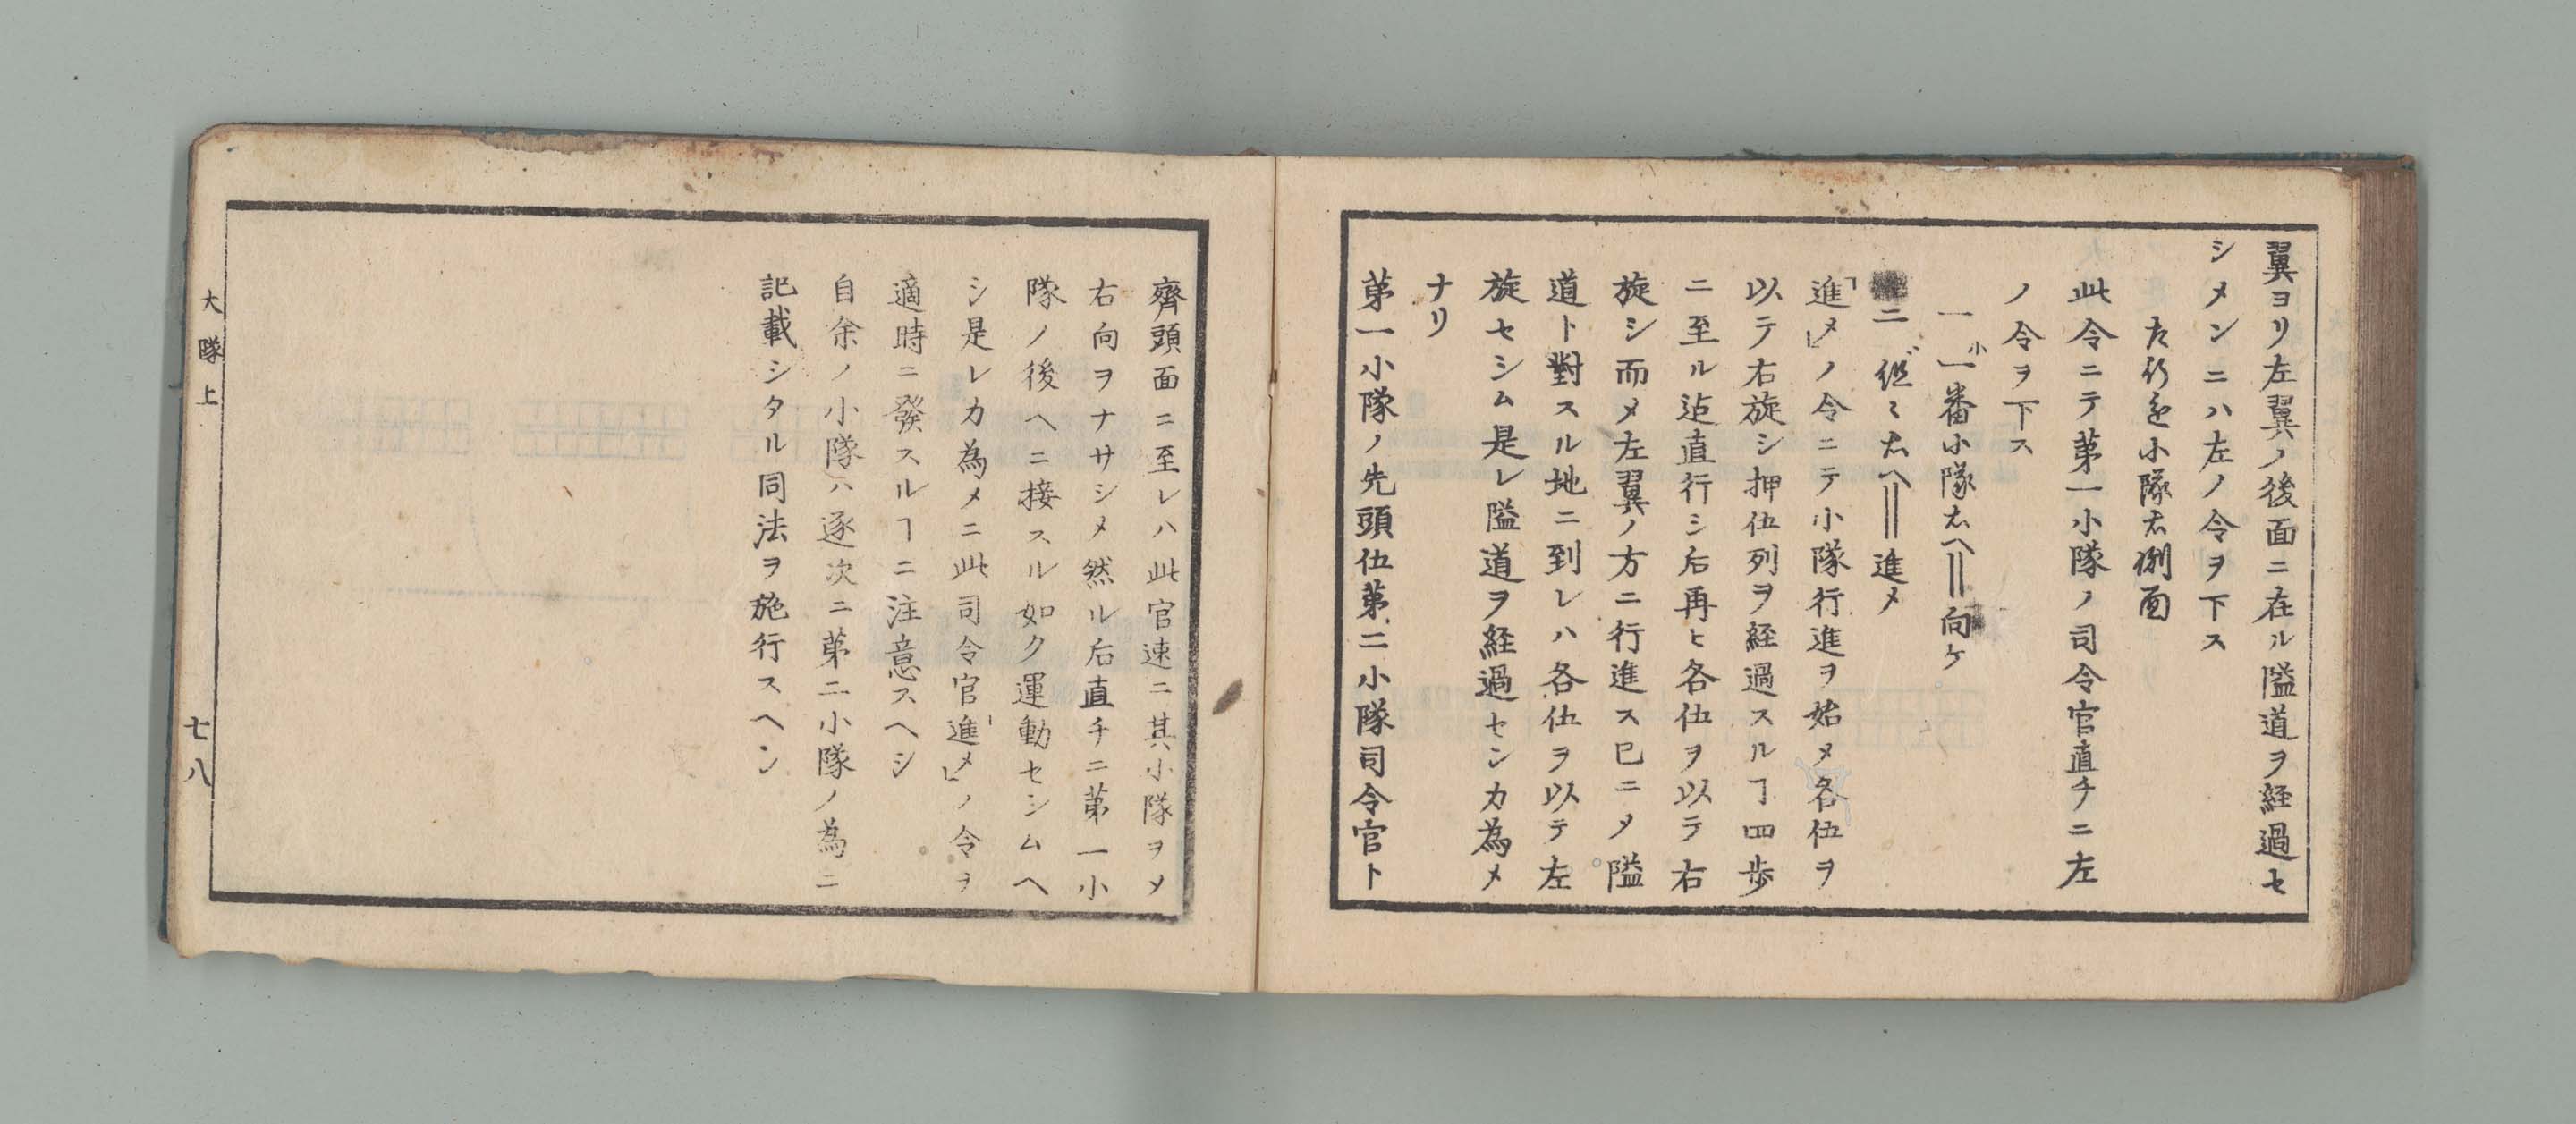 翼ヨリ左翼ノ後面ニ在ル隘道ヲ経過セ
シメンニハ左ノ令ヲ下ス
小隊右側面
此令ニテ第一小隊ノ司令官直チニ左
ノ令ヲ下ス
一 一番小隊右ヘ‖向ケ
二 組々右ヘ‖進メ
「進メ」ノ令ニテ小隊行進ヲ始メ各伍ヲ
以テ右旋シ押伍列ヲ経過スルヿ四歩
ニ至ル迠直行シ后再ヒ各伍ヲ以テ右
旋シ而メ左翼ノ方ニ行進ス已ニメ隘
道ト對スル地ニ到レハ各伍ヲ以テ左
旋セシム是レ隘道ヲ経過センカ為メ
ナリ
第一小隊ノ先頭伍第二小隊司令官ト
齊頭面ニ至レハ此官速ニ其小隊ヲメ
右向ヲナサシメ然ル后直チニ第一小
隊ノ後ヘニ接スル如ク運動セシムヘ
シ是レカ為メニ此司令官「進メ」ノ令ヲ
適時ニ發スルヿニ注意スヘシ
自余ノ小隊ハ逐次ニ第二小隊ノ為ニ
記載シタル同法ヲ施行スヘシ
大隊上
七八